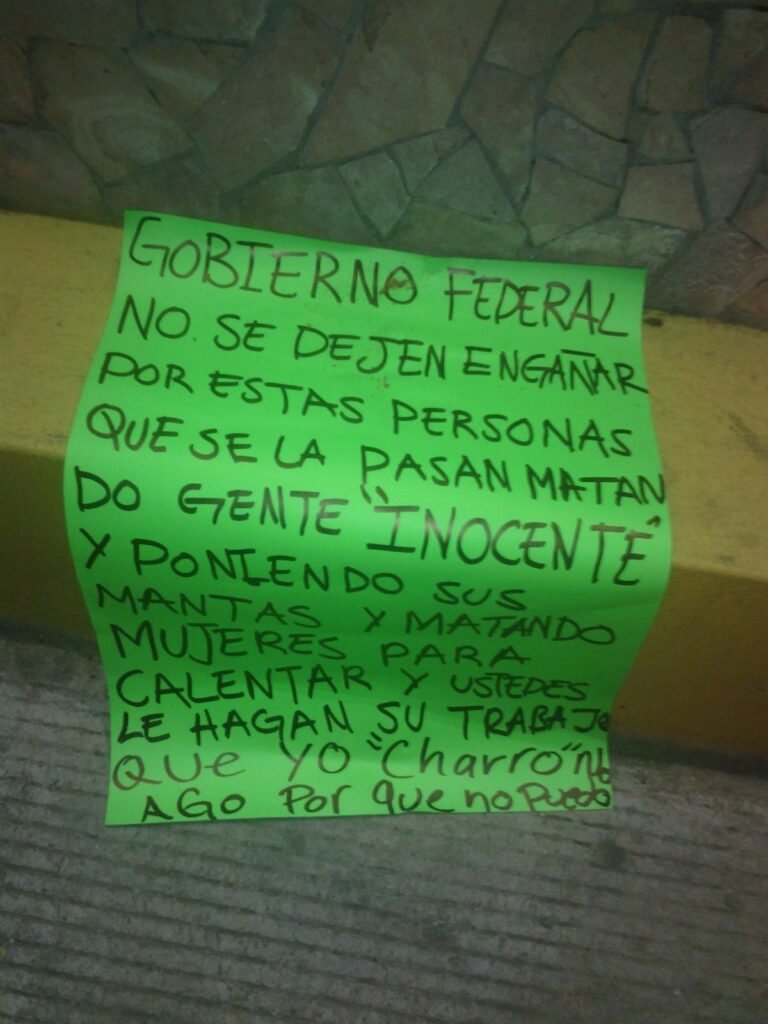 GOBIERNO FEDERAL
NO SE DEJEN ENGAÑAR
POR ESTAS PERSONAS
QUE SE LA PASAN MATAN
DO GENTE "INOCENTE"
Y PONIENDO SUS
MANTAS Y MATANDO
MUJERES PARA
CALENTAR Y USTEDES
LE HAGAN SU TRABAJO
QUe YO "Charro" no
AGO Por que no Puedo